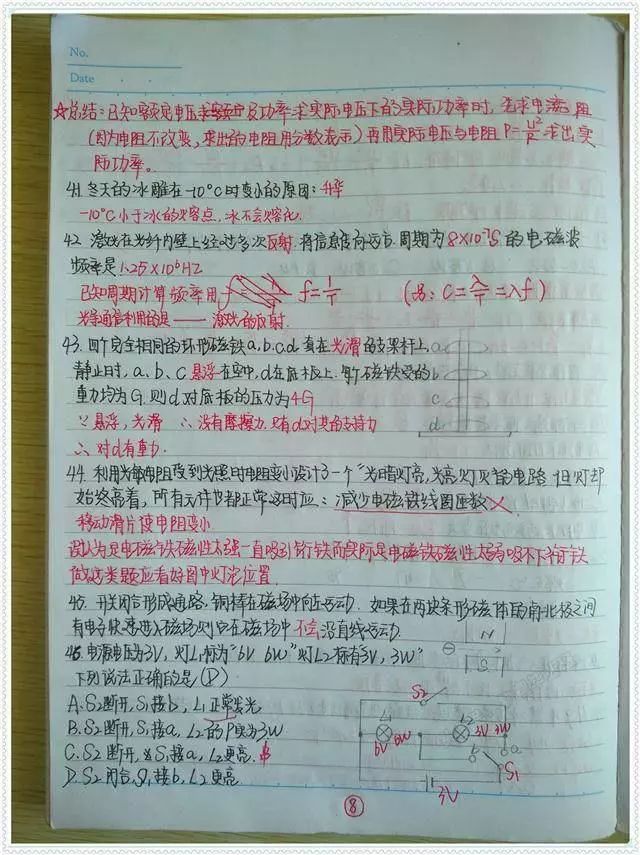 No.
Date
☆总结:已知额定电压及功率求实际电压下的实际功率时,先求电阻
(因为电阻不改变,求出的电阻用分数表示)再用实际电压与电阻P=U²/R求出实
际功率。
41.冬天的冰雕在-10°C时变小的原因:升华
-10°C小于冰的熔点,冰不会熔化.
42.激光在光纤内壁上经过多次反射.将信息传向远方.周期为8×10⁻⁷S的电磁波
频率是1.25×10⁶HZ
已知周期计算频率用 f=1/T (另:C=λ/T=λf)
光导通信利用的是——激光的反射.
43.四个完全相同的环形磁铁a,b,c,d套在光滑的支架杆上
静止时,a、b、c悬浮在空中,d在底板上.每个磁铁受的
重力均为G.则d对底板的压力为4G
∵悬浮,光滑 ∴没有摩擦力.只有d对其的支持力
∴对d有重力.
a
b
c
d
44.利用光敏电阻受到光照时电阻变小设计了一个"光暗灯亮,光亮灯灭"的电路.但灯却
始终亮着,所有元件也都正常.这时应:减少电磁铁线圈匝数×
移动滑片使电阻变小
误认为是电磁铁磁性太强一直吸引衔铁而实际是电磁铁磁性太弱吸不下衔铁
做这类题应看好图中灯泡位置.
45.开关闭合形成通路,铜棒在磁场中向左运动.如果在两块条形磁体的南北极之间
有电子快速进入磁场则它在磁场中不会沿直线运动.
N
S
46.电源电压为3V,灯L1标为"6V 6W"灯L2标有"3V,3W"
下列说法正确的是(D)
A.S2断开,S1接b,L1正常发光
B.S2断开,S1接a,L2的P实为3W
C.S2断开,S1接a,L2更亮.
D.S2闭合,S1接b,L2更亮
S2
L1
L2
6V 6W
3V 3W
b
a
S1
3V
8